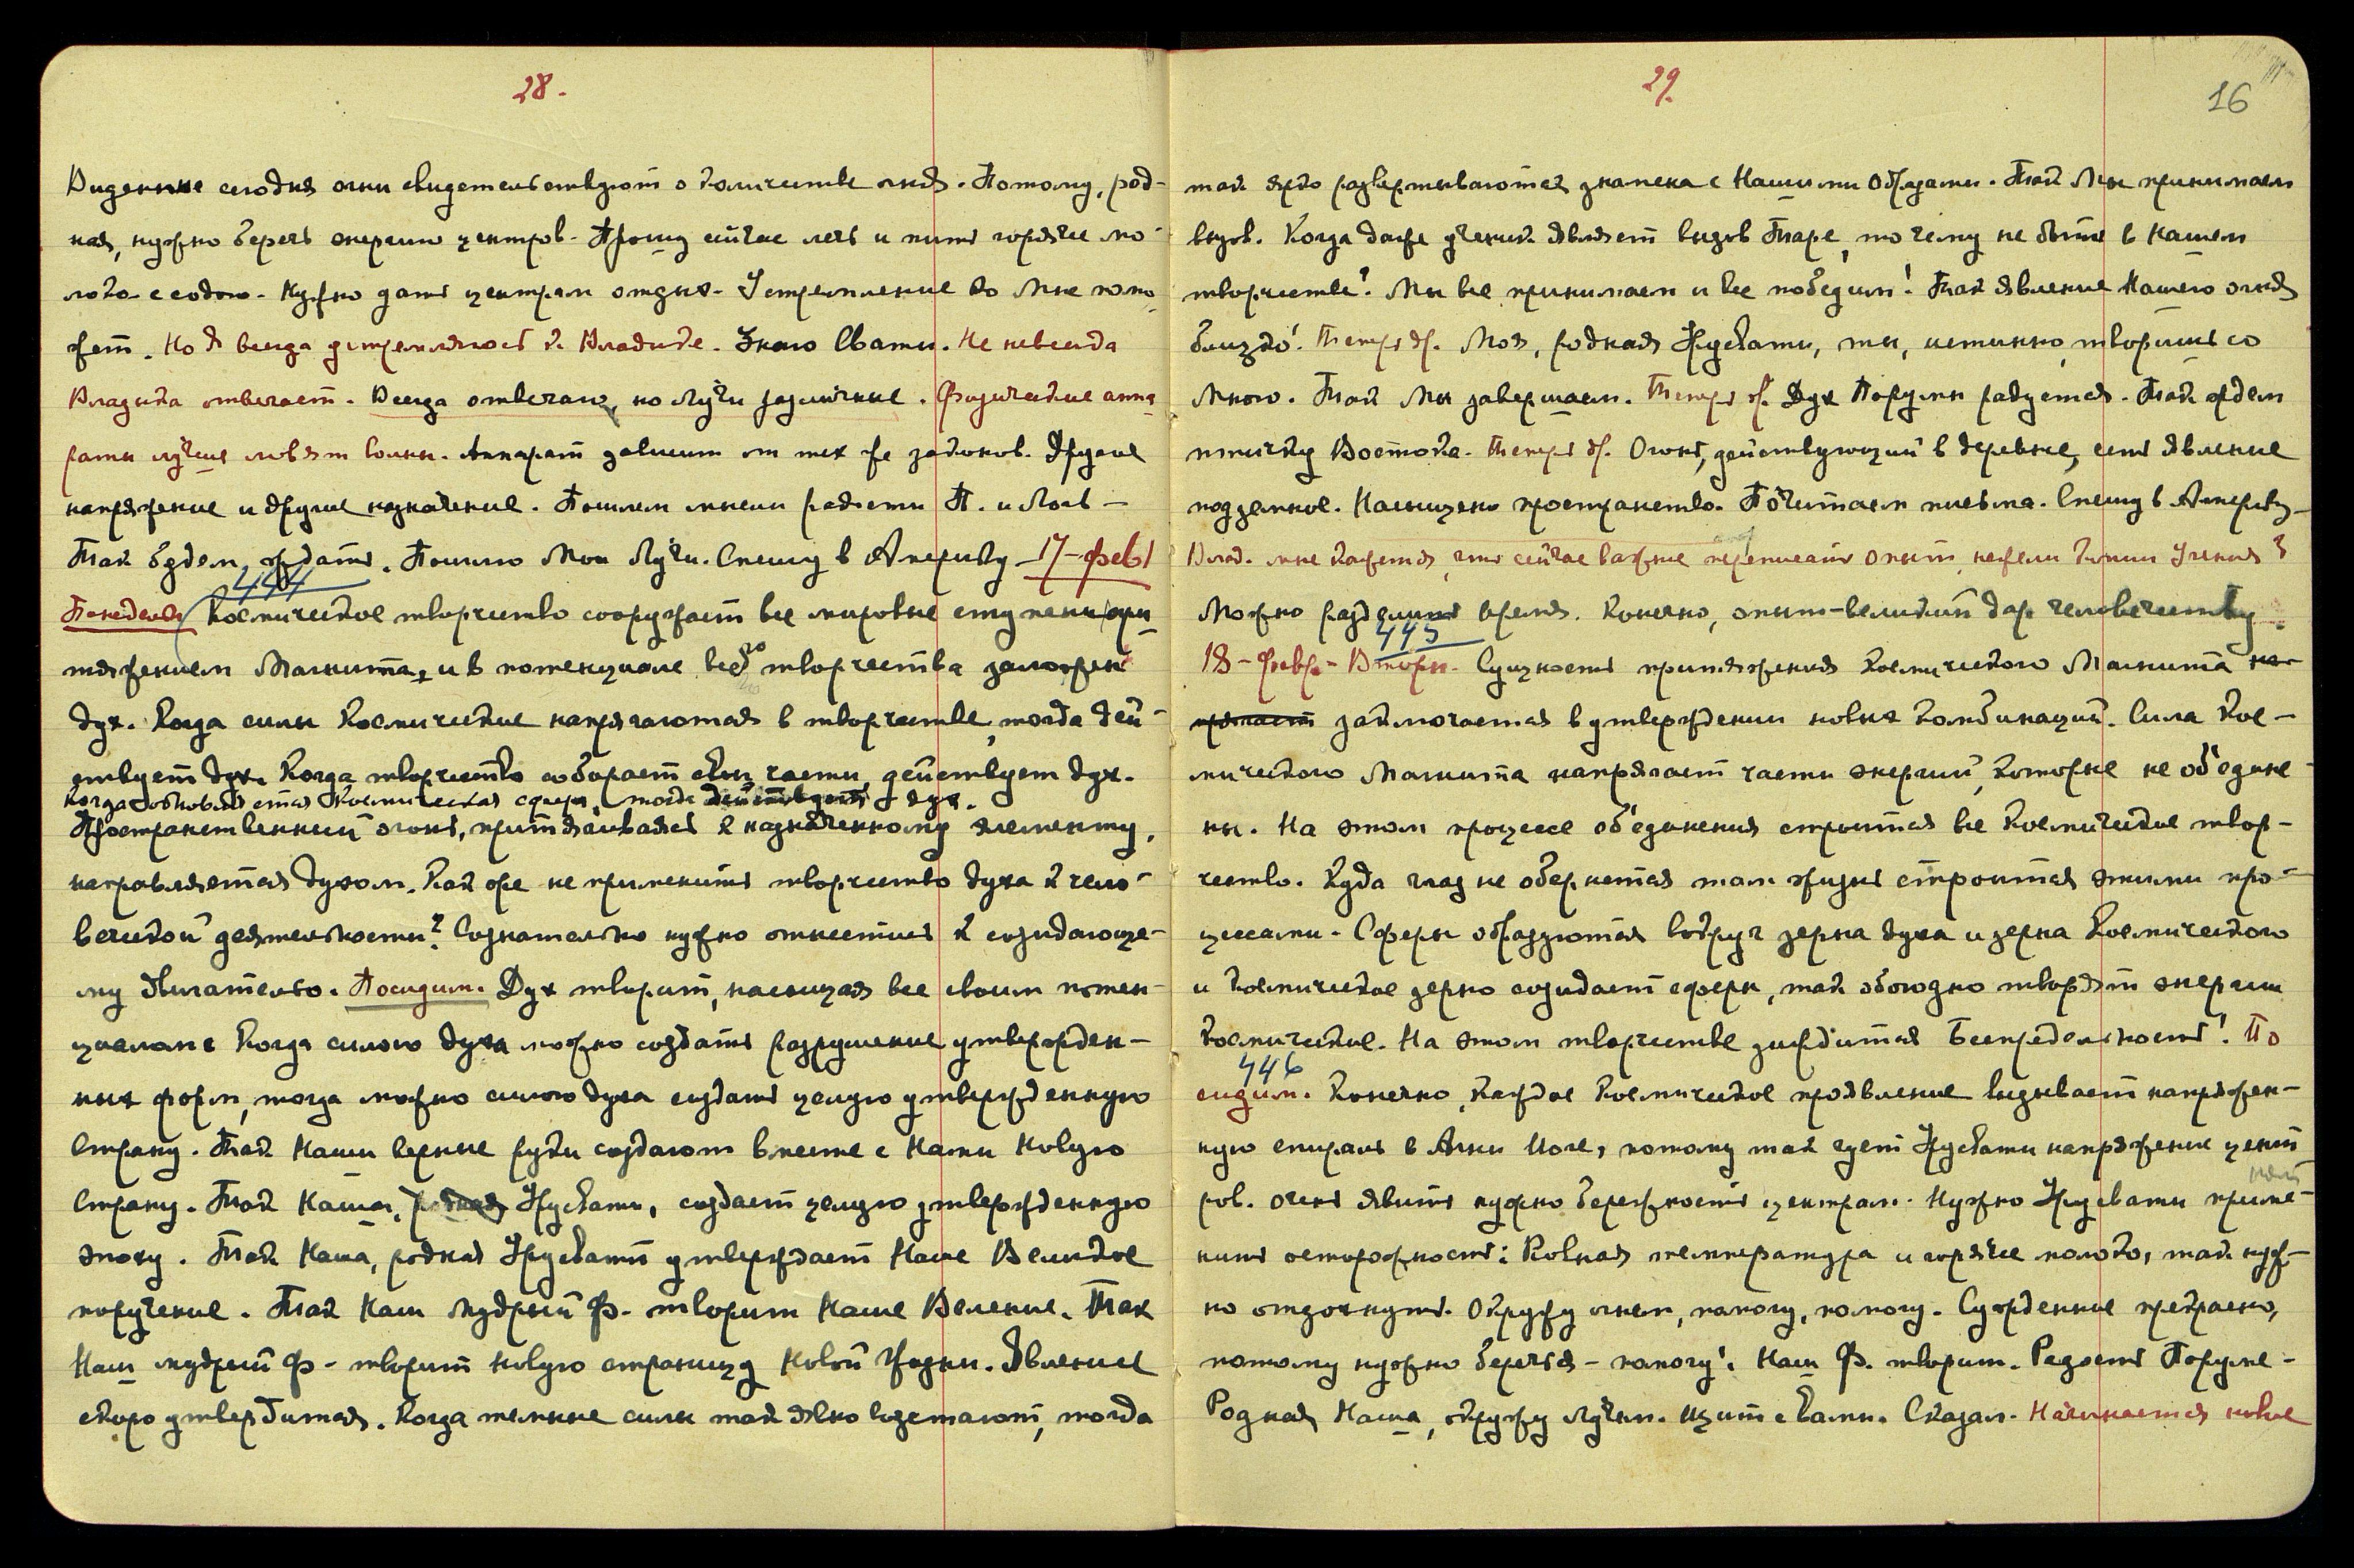 28.
Виденные сегодня огни свидетельствуют о количестве огня. Потому, род-
ная, нужно беречь энергию центров. Прошу сейчас лечь и пить горячее мо-
локо с содою. Нужно дать центрам отдых. Устремление ко Мне помо-
жет. Но я всегда устремляюсь к Владыке. Знаю Свати. Не всегда
Владыка отвечает. Всегда отвечаю, но Лучи различные. Физические аппа-
раты лучше ловят волны. Аппарат зависит от тех же законов. Другое
напряжение и другое назначение. Пошлем мысли радости П. и Логв-
Так будем ждать. Пошлю Мои Лучи. Спешу в Америку 17-февр
444
Понедельн Космическое творчество сооружает все мировые ступени при-
тяжением Магнита, и в потенциале всего творчества заложен
дух. Когда силы Космические напрягаются в творчестве, тогда дей-
ствует дух. Когда творчество собирает свои части, действует дух.
Когда обновляется Космическая сфера, тогда действует дух.
Пространственный огонь, притягиваясь к назначенному элементу,
направляется духом. Как же не применить творчество духа к чело-
веческой деятельности? Сознательно нужно отнестись к созидающе-
му двигателю. Посидим. Дух творит, насыщая все своим потен-
циалом. Когда силою духа можно создать разрушение утвержден-
ных форм, тогда можно силою духа создать целую утвержденную
Страну. Так Наши верные руки создают вместе с Нами Новую
Страну. Так Наша, родная Урусвати, создает целую утвержденную
эпоху. Так Наша, родная Урусвати утверждает Наше Великое
поручение. Так Наш мудрый Ф. творит Наше Веление. Так
Наш мудрый Ф - творит новую страницу Новой Жизни. Явление
скоро утвердится. Когда темные силы так явно восстают, тогда
29.
16
так ярко развертываются знамена с Нашими Образами. Так Мы принимаем
вызов. Когда даже ученик являет вызов Таре, то чему не быть в нашем
творчестве! Мы все принимаем и все победим! Так явление Нашего огня
близко! Теперь др. Моя, родная Урусвати, ты, истинно, творишь со
Мною. Так Мы завершаем. Теперь др. Дух Порумы радуется. Так ждем
птичку Востока. Теперь др. Огонь, действующий в деревне, есть явление
подземное. Насыщено пространство. Почитаем письма. Спешу в Америку-
Влад. мне кажется, что сейчас важнее переписать опыт, нежели книги Учения?
Можно разделить время. Конечно, опыт-великий дар человечеству.
445
18 - февр - Вторн. Сущность притяжения Космического Магнита на-
прягает заключается в утверждении новых комбинаций. Сила Кос-
мического Магнита напрягает части энергий, которые не объедине-
ны. На этом процессе объединения строится все Космическое твор-
чество. Куда глаз не обернется там жизнь строится этими про-
цессами. Сферы образуются вокруг зерна духа и зерна Космического
и Космическое зерно созидает сферы, так обоюдно творят энергии
Космические. На этом творчестве зиждится Беспредельность! По
446
сидим. Конечно, каждое Космическое проявление вызывает напряжен-
ную спираль в Агни Иоге, потому так чует Урусвати напряжение цент
ров. Очень явить нужно бережность центрам. Нужно Урусвати приме-
нить осторожность: Ровная температура и горячее молоко, так нуж-
но отдохнуть. Окружу огнем, помогу, помогу. Сужденное прекрасно,
потому нужно беречься - помогу! Наш Ф. творит. Радость Поруме-
Родная Наша, окружу Лучем. Щит с вами. Сказал. Начинается новое